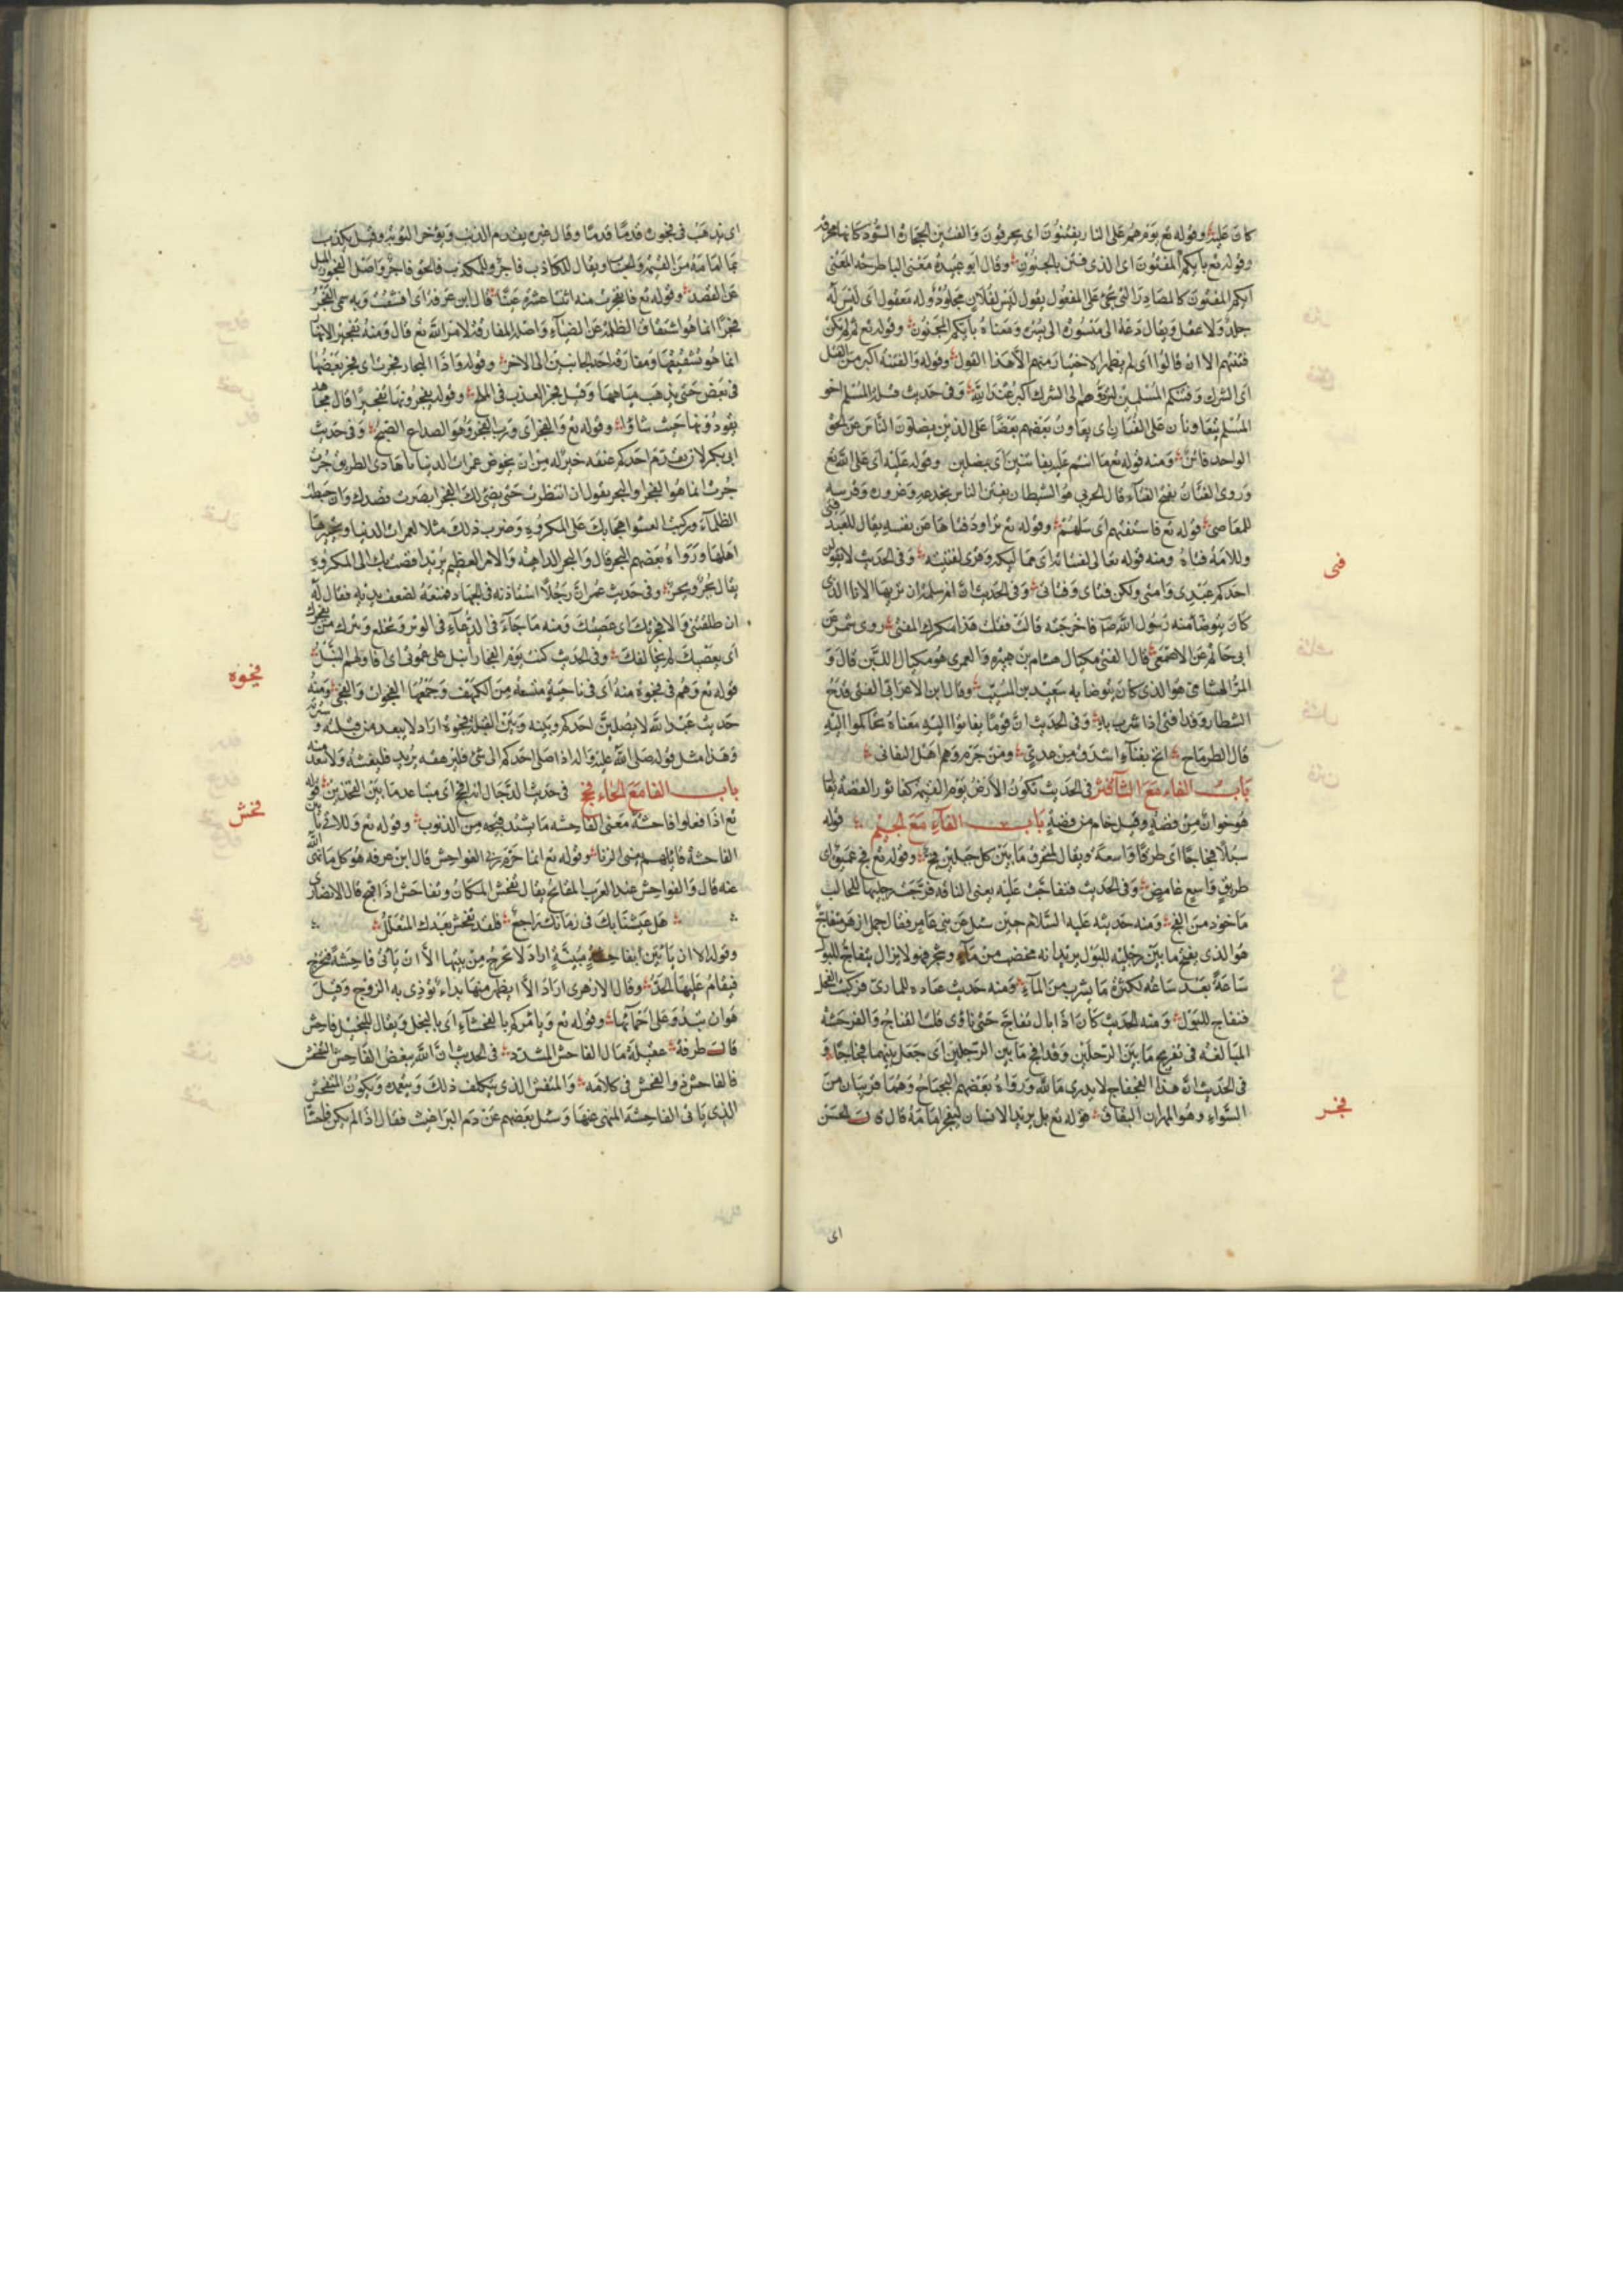 كان عليه وقوله تع يوم هم على النار يفتنون اى يحرقون والفتين الحجارة السود كانها محرقة
وقوله تع بايكم المفتون اى الذى فتن بالجنون وقال ابو عبيدة معنى البا طرحه المعنى
ايكم المفتون كالمصادر التى تجئ على المفعول يقول ليس لفلان مجلود وله معقول اى ليس له
جلد ولا عقل ويقال دعه الى ميسوره الى يسره ومعناه بايكم الجنون وقوله تع ثم لم تكن
فتنتهم الا ان قالوا اى لم يظهر الاختبار منهم الا هذا القول وقوله والفتنة اكبر من القتل
اى الشرك وفتنكم المسلمين لتردوهم الى الشرك اكبر عند الله وفى حديث قيلة المسلم اخو
المسلم يتعاونان على الفتان اى يعاون بعضهم بعضا على الذين يضلون الناس عن الحق
الواحد فاتن ومنه قوله تع ما انتم عليه بفاتنين اى بمضلين وقوله عليه اى على الله تع
وروى الفتان بفتح الفاء قال الحربى هو الشيطان يفتن الناس بخدعه وغروره
للمعاصى قوله تع فاستفتهم اى سلهم وقوله تع تراود فتاها عن نفسه يقال للعبد فتى
وللامة فتاة ومنه قوله تعالى لفتيانه اى مماليكه وقرئ لفتيته وفى الحديث لا يقولن
احدكم عبدى وامتى ولكن فتاى وفتاتى وفى الحديث ان امرأة سالت ام سلمة ان تريها الاناء الذى
كان يتوضا منه رسول الله فاخرجته قالت فقلت هذا مكوك المفتى روى شمر عن
ابى حاتم عن الاصمعى قال المفتى مكيال هشام بن هبيرة والعمرى هو مكيال اللبن قال و
المد الهشامى هو الذى كان يتوضا به سعيد بن المسيب وقال ابن الاعرابى الفتى قدح
الشطار وقد افتى اذا شرب به وفى الحديث ان قوما تفاتوا اليه معناه تحاكموا اليه
قال الطرماح انخ بفناء اشدق من عدى ومن جرم وهم اهل التفاتى
باب الفاء مع الثاء فثر فى الحديث تكون الارض يوم القيمة كفاثور الفضة
هو خوان من فضة وقيل جام من فضة باب الفاء مع الجيم قوله
سبلا فجاجا اى طرقا واسعة ويقال للمنخرق ما بين كل جبلين فج وقوله تع فج عميق اى
طريق واسع غامض وفى الحديث فتفاجت عليه يعنى الناقة فرجت رجليها للحالب
ماخوذ من الفج ومنه حديثه عليه السلام حين سئل عن بنى عامر فقال جمل ازهر متفاج
هو الذى يفتح ما بين رجليه للبول يريد انه مخصب من ماء وشجر فهو لا يزال يتفاج للبول
ساعة بعد ساعة لكثرة ما يشرب من الماء ومنه حديث عبادة المازنى فركبت الفحل
فتفاج للبول ومنه الحديث كان اذا بال تفاج حتى ناوى له التفاج
المبالغة فى تفريج ما بين الرجلين وقد افج ما بين الرجلين اى جعل بينهما فجاجا و
فى الحديث ان هذا الفجفاج لا يدرى ما الله ورواه بعضهم البجباج وهما قريبان من
السواء وهو المهذار البقاق قوله تع بل يريد الانسان ليفجر امامه قالت الحسن
فتى
فجر
اى
اى يذهب فى فجوره قدما قدما وقال غيره يقدم الذنب ويؤخر التوبة وقيل يكذب
بما امامه من القيمة والحساب ويقال للكاذب فاجر وللمكذب بالحق فاجر واصل الفجور الميل
عن القصد وقوله تع فانفجرت منه اثنتا عشرة عينا قال ابن عرفة اى انشقت وبه سمى الفجر
فجرا انما هو انشقاق الظلمة عن الضياء واصله المفارقة لامر الله تع قال ومنه تفجير الانهار
انما هو تشقيقها ومفارقة احد الجانبين الى الاخر وقوله واذا البحار فجرت اى فجر بعضها
فى بعض حتى يذهب مياهها وقيل فجر العذب فى الملح وقوله يفجرونها تفجيرا قال مجاهد
يقودونها حيث شاؤا وقوله تع والفجر اى ورب الفجر وهو انصداع الصبح وفى حديث
ابى بكر لان يقدم احدكم عنقه خير له من ان يخوض غمرات الدنيا يا هادى الطريق جرت
جرت انما هو الفجر او البجر يقول ان انتظرت حتى يضئ لك الفجر ابصرت قصدك وان خبطت
الظلماء وركبت العشوا هجما بك على المكروه وضرب ذلك مثلا لغمرات الدنيا وتحيرها
اهلها ورواه بعضهم البجر قال والبجر الداهية والامر العظيم يريد افضت بك الى المكروه
يقال بجر وبجر وفى حديث عمر ان رجلا استاذنه فى الجهاد فمنعه لضعف بدنه فقال له
ان طلقتنى والا فجرتك اى عصيتك ومنه ما جاء فى الدعاء فى الوتر ونخلع ونترك من يفجرك
اى يعصيك ويخالفك وفى الحديث كنت يوم الفجار انبل على عمومتى اى اناولهم النبل
قوله تع وهم فى فجوة منه اى فى ناحية متسعة من الكهف وجمعها الفجوات والفجى ومنه
حديث عبد الله لا يصلين احدكم وبينه وبين القبلة فجوة اراد لا يبعد من قبلته و
وهذا مثل قوله صلى الله عليه واله اذا صلى احدكم الى شئ فليرهقه يريد فليغشه ولا يبعد منه
باب الفا مع الحاء فحج فى حديث الدجال انه افحج اى متباعد ما بين الفخذين قوله
تع اذا فعلوا فاحشة معنى الفاحشة ما يشتد قبحه من الذنوب وقوله تع واللاتى ياتين
الفاحشة من نسائهم يعنى الزنا وقوله تع انما حرم ربى الفواحش قال ابن عرفة هو كل ما نهى الله
عنه قال والفواحش عند العرب المقابح يقال تفحش المكان وتفاحش اذا قبح قال الانصارى
هل عيشنا بك فى زمانك راجع فلقد تفحش بعدك المتعلل
وقوله الا ان ياتين بفاحشة مبينة اراد لا تخرج من بيتها الا ان ياتى فاحشة فتخرج
فيقام عليها الحد وقال الازهرى اراد الا ان يظهر منها بذاء تؤذى به الزوج وقيل
هو ان تبذو على احمائها وقوله تع ويامركم بالفحشاء اى بالبخل ويقال للبخيل فاحش
قالت طرفة عقيلة مال الفاحش المتشدد فى الحديث ان الله يبغض الفاحش المتفحش
فالفاحش ذو الفحش فى كلامه والمتفحش الذى يتكلف ذلك ويتعمده ويكون المتفحش
الذى ياتى الفاحشة المنهى عنها وسئل بعضهم عن دم البراغيث فقال اذا لم يكن فاحشا
فجوة
فحش